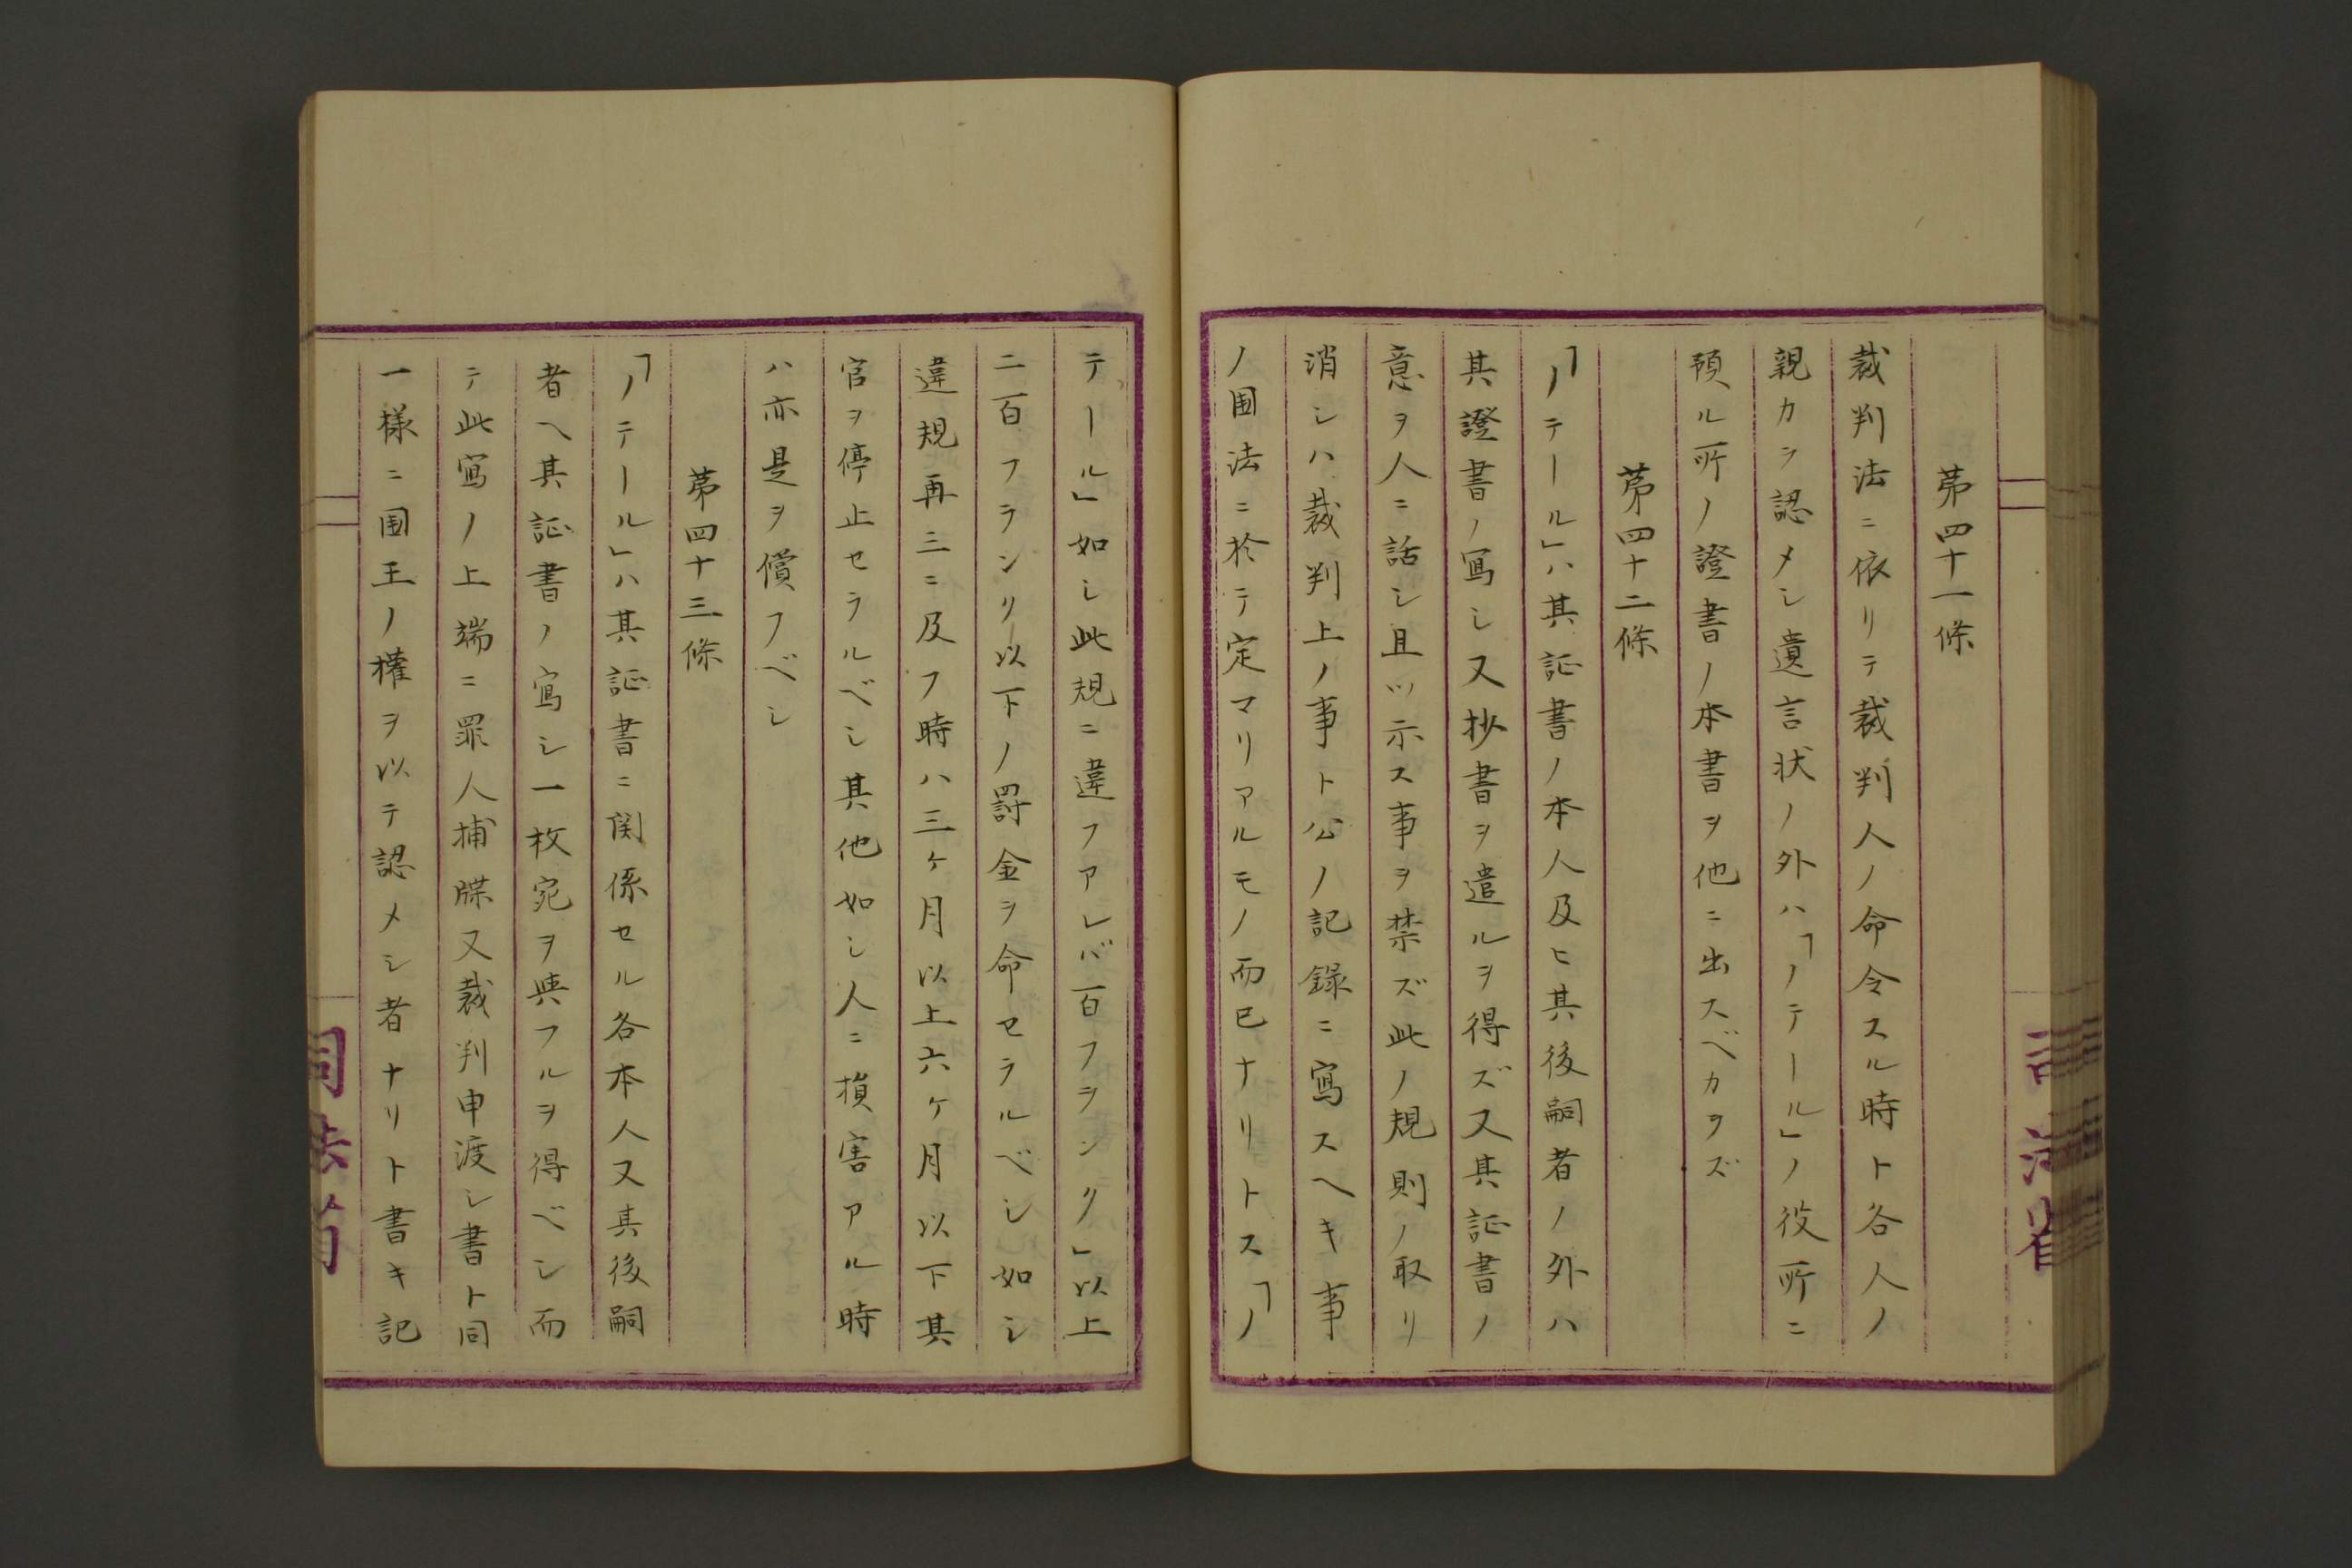 第四十一條
裁判法ニ依リテ裁判人ノ命令スル時ト各人ノ
親カラ認メシ遺言状ノ外ハ「ノテール」ノ役所ニ
預ル所ノ證書ノ本書ヲ他ニ出スベカラズ
第四十二條
「ノテール」ハ其証書ノ本人及ヒ其後嗣者ノ外ハ
其證書ノ写シ又抄書ヲ遣ルヲ得ズ又其証書ノ
意ヲ人ニ話シ且ツ示ス事ヲ禁ズ此ノ規則ノ取リ
消シハ裁判上ノ事ト公ノ記録ニ寫スヘキ事
ノ国法ニ於テ定マリアルモノ而已ナリトス「ノ
テール」如シ此規ニ違フアレバ百フランク」以上
二百フランク以下ノ罰金ヲ命セラルベシ如シ
違規再三ニ及フ時ハ三ヶ月以上六ヶ月以下其
官ヲ停止セラルベシ其他如シ人ニ損害アル時
ハ亦是ヲ償フベシ
第四十三條
「ノテール」ハ其証書ニ関係セル各本人又其後嗣
者ヘ其証書ノ寫シ一枚宛ヲ與フルヲ得ベシ而
テ此寫ノ上端ニ罪人捕牒又裁判申渡シ書ト同
一様ニ国王ノ權ヲ以テ認メシ者ナリト書キ記
司法省
司法省